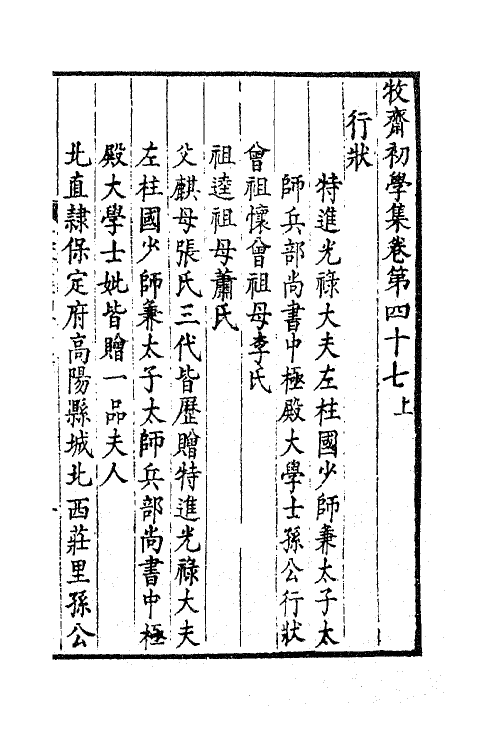 牧齋初學集卷第四十七上
行狀
特進光祿大夫左柱國少師兼太子太
師兵部尚書中極殿大學士孫公行狀
曾祖懷曾祖母李氏
祖逵祖母蕭氏
父麒母張氏三代皆歷贈特進光祿大夫
左柱國少師兼太子太師兵部尚書中極
殿大學士妣皆贈一品夫人
北直隸保定府高陽縣城北西莊里孫公